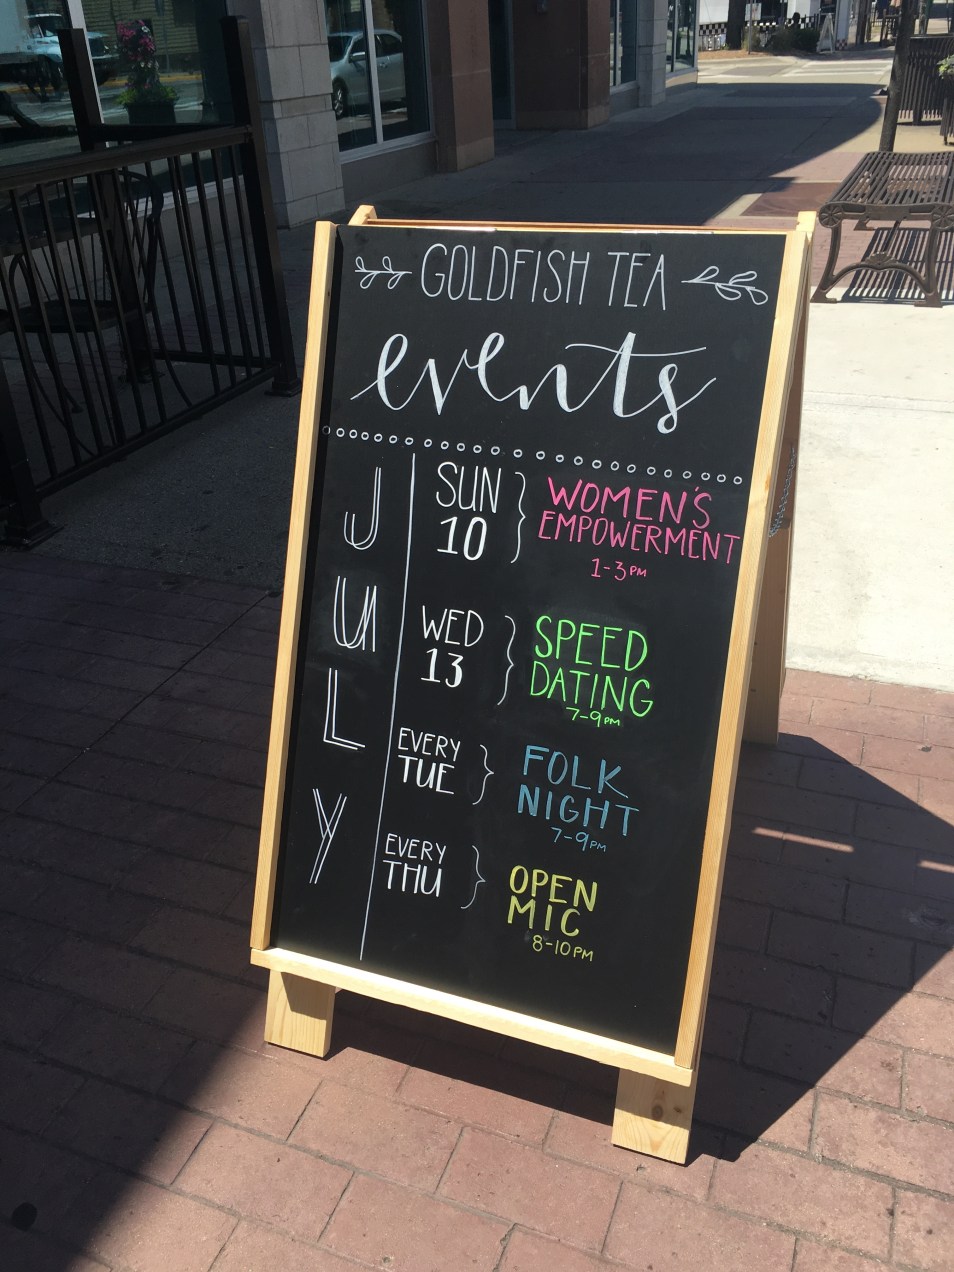 GOLDFISH TEA
events
JULY
SUN
10
WOMEN'S
EMPOWERMENT
1-3PM
WED
13
SPEED
DATING
7-9PM
EVERY
TUE
FOLK
NIGHT
7-9PM
EVERY
THU
OPEN
MIC
8-10PM